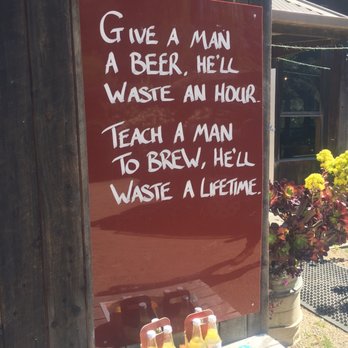 GIVE A MAN
A BEER, HE'LL
WASTE AN HOUR.
TEACH A MAN
TO BREW, HE'LL
WASTE A LIFETIME.